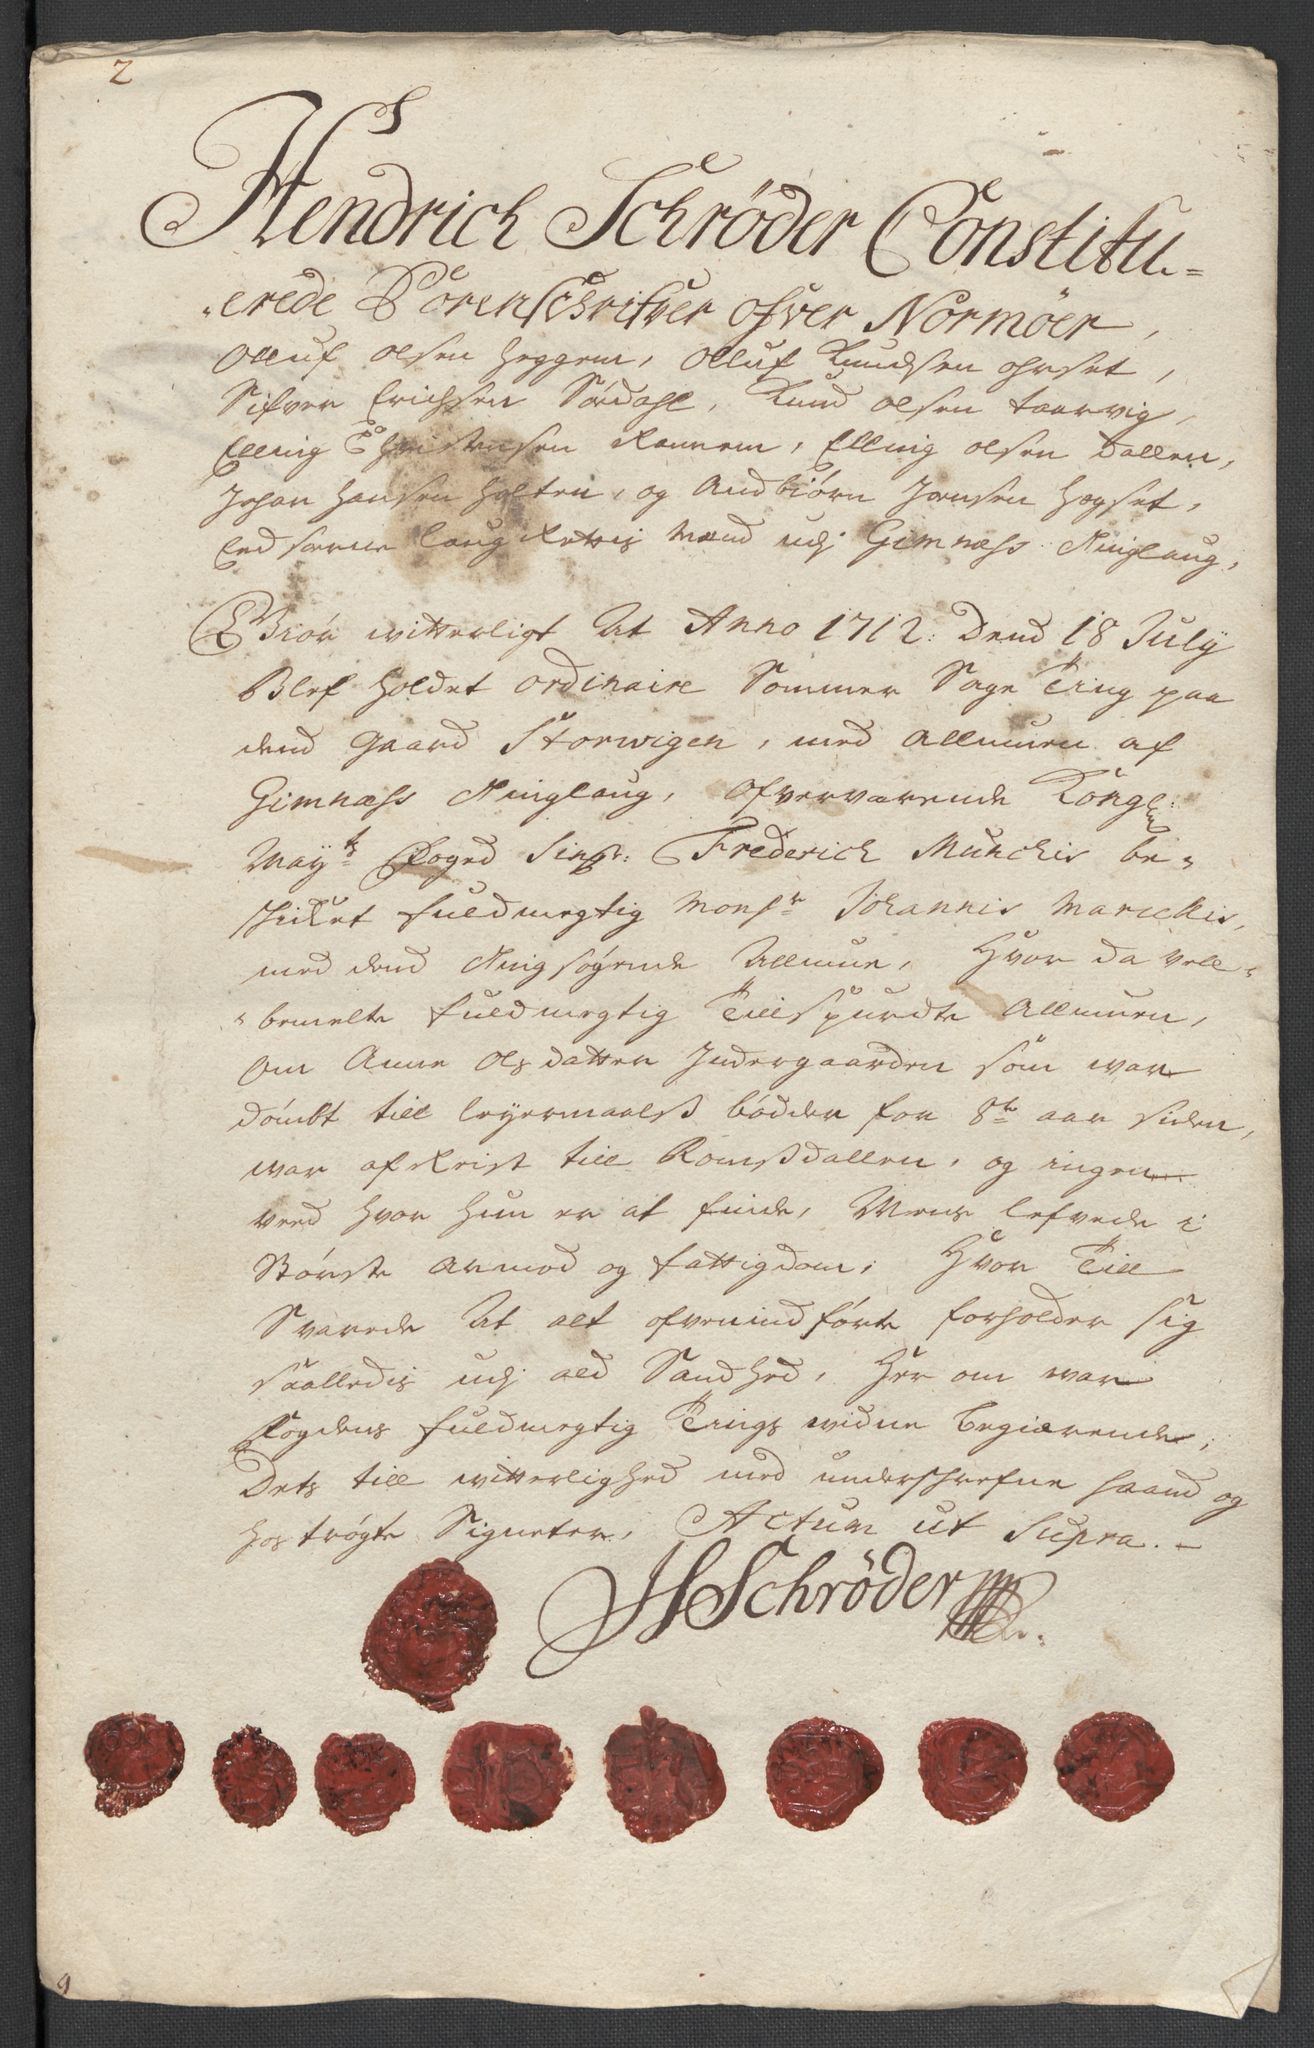 2
Hendrich Schröder Constitu-
erede Sorenschrifver ofver Normöer,
Olluf olsen heggem, olluf Knudsen ohrset,
Sifver Erichsen Sördahl, Knud olsen taarvig,
Elling Christensen Rannem, Elling olsen dallen,
Johan hansen holten, og Andbiörn Jensen hogset,
Eedsorne laug Rettis Mænd udj Gimnæss tinglaug,
Giör witterligt At Anno 1712: Dend 18 July
Blef holdet ordinaire Sommer Sage Ting paa
dend gaard Storwigen, med allmuen af
Gimnæss tinglaug, ofverværende Kongl:
May:ts foged Sinr: Frederich Munchis be-
skiket fuldmegtig Monsr. Johannis Marichis,
med dend tingsøgende Allmue, Hvor da vell-
bemelte fuldmegtig Tillspurdte allmuen,
om Anne olsdatter Indergaarden som war
dömbt till leyermaalss böder for 8te aar siden,
war afReist till Romssdallen, og ingen
veed hvor hun er at finde, Mens lefvede i
Störste armod og fattigdom, Hvor Till
Svarede At alt ofvenindförte forholder sig
saalledis udj ald Sandhed, Her om war
fogdens fuldmegtig Tings widne begierende,
Dets till witterlighed med underschrefne haand og
hoströgte Signeter, Actum ut Supra. -
HSchröder
9